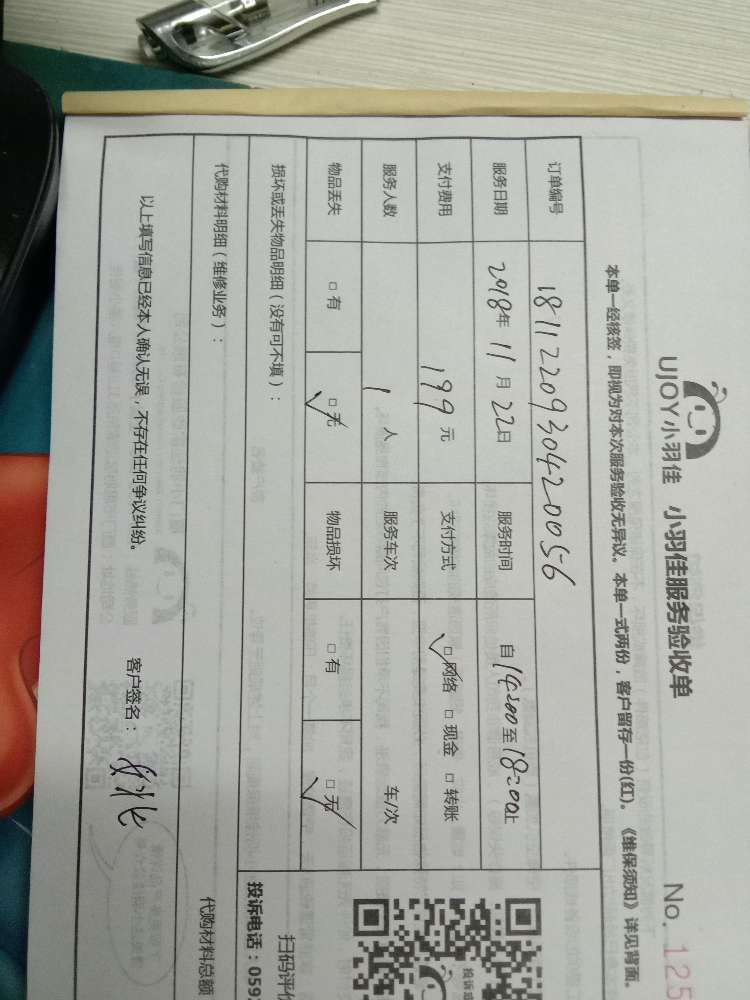 UJOY小羽佳 小羽佳服务验收单 No. 125
本单一经核签，即视为对本次服务验收无异议。本单一式两份，客户留存一份(红)。《维保须知》详见背面。
订单编号 1811220930420056
服务日期 2018年 11月 22日 服务时间 自14:00至18:00止
支付费用 199元 支付方式 □网络 □现金 □转账
服务人数 1人 服务车次 车/次
物品丢失 □有 □无 物品损坏 □有 □无
损坏或丢失物品明细（没有可不填）：
代购材料明细（维修业务）：
代购材料总额
以上填写信息已经本人确认无误，不存在任何争议纠纷。 客户签名：
投诉
扫码评价
投诉电话：059